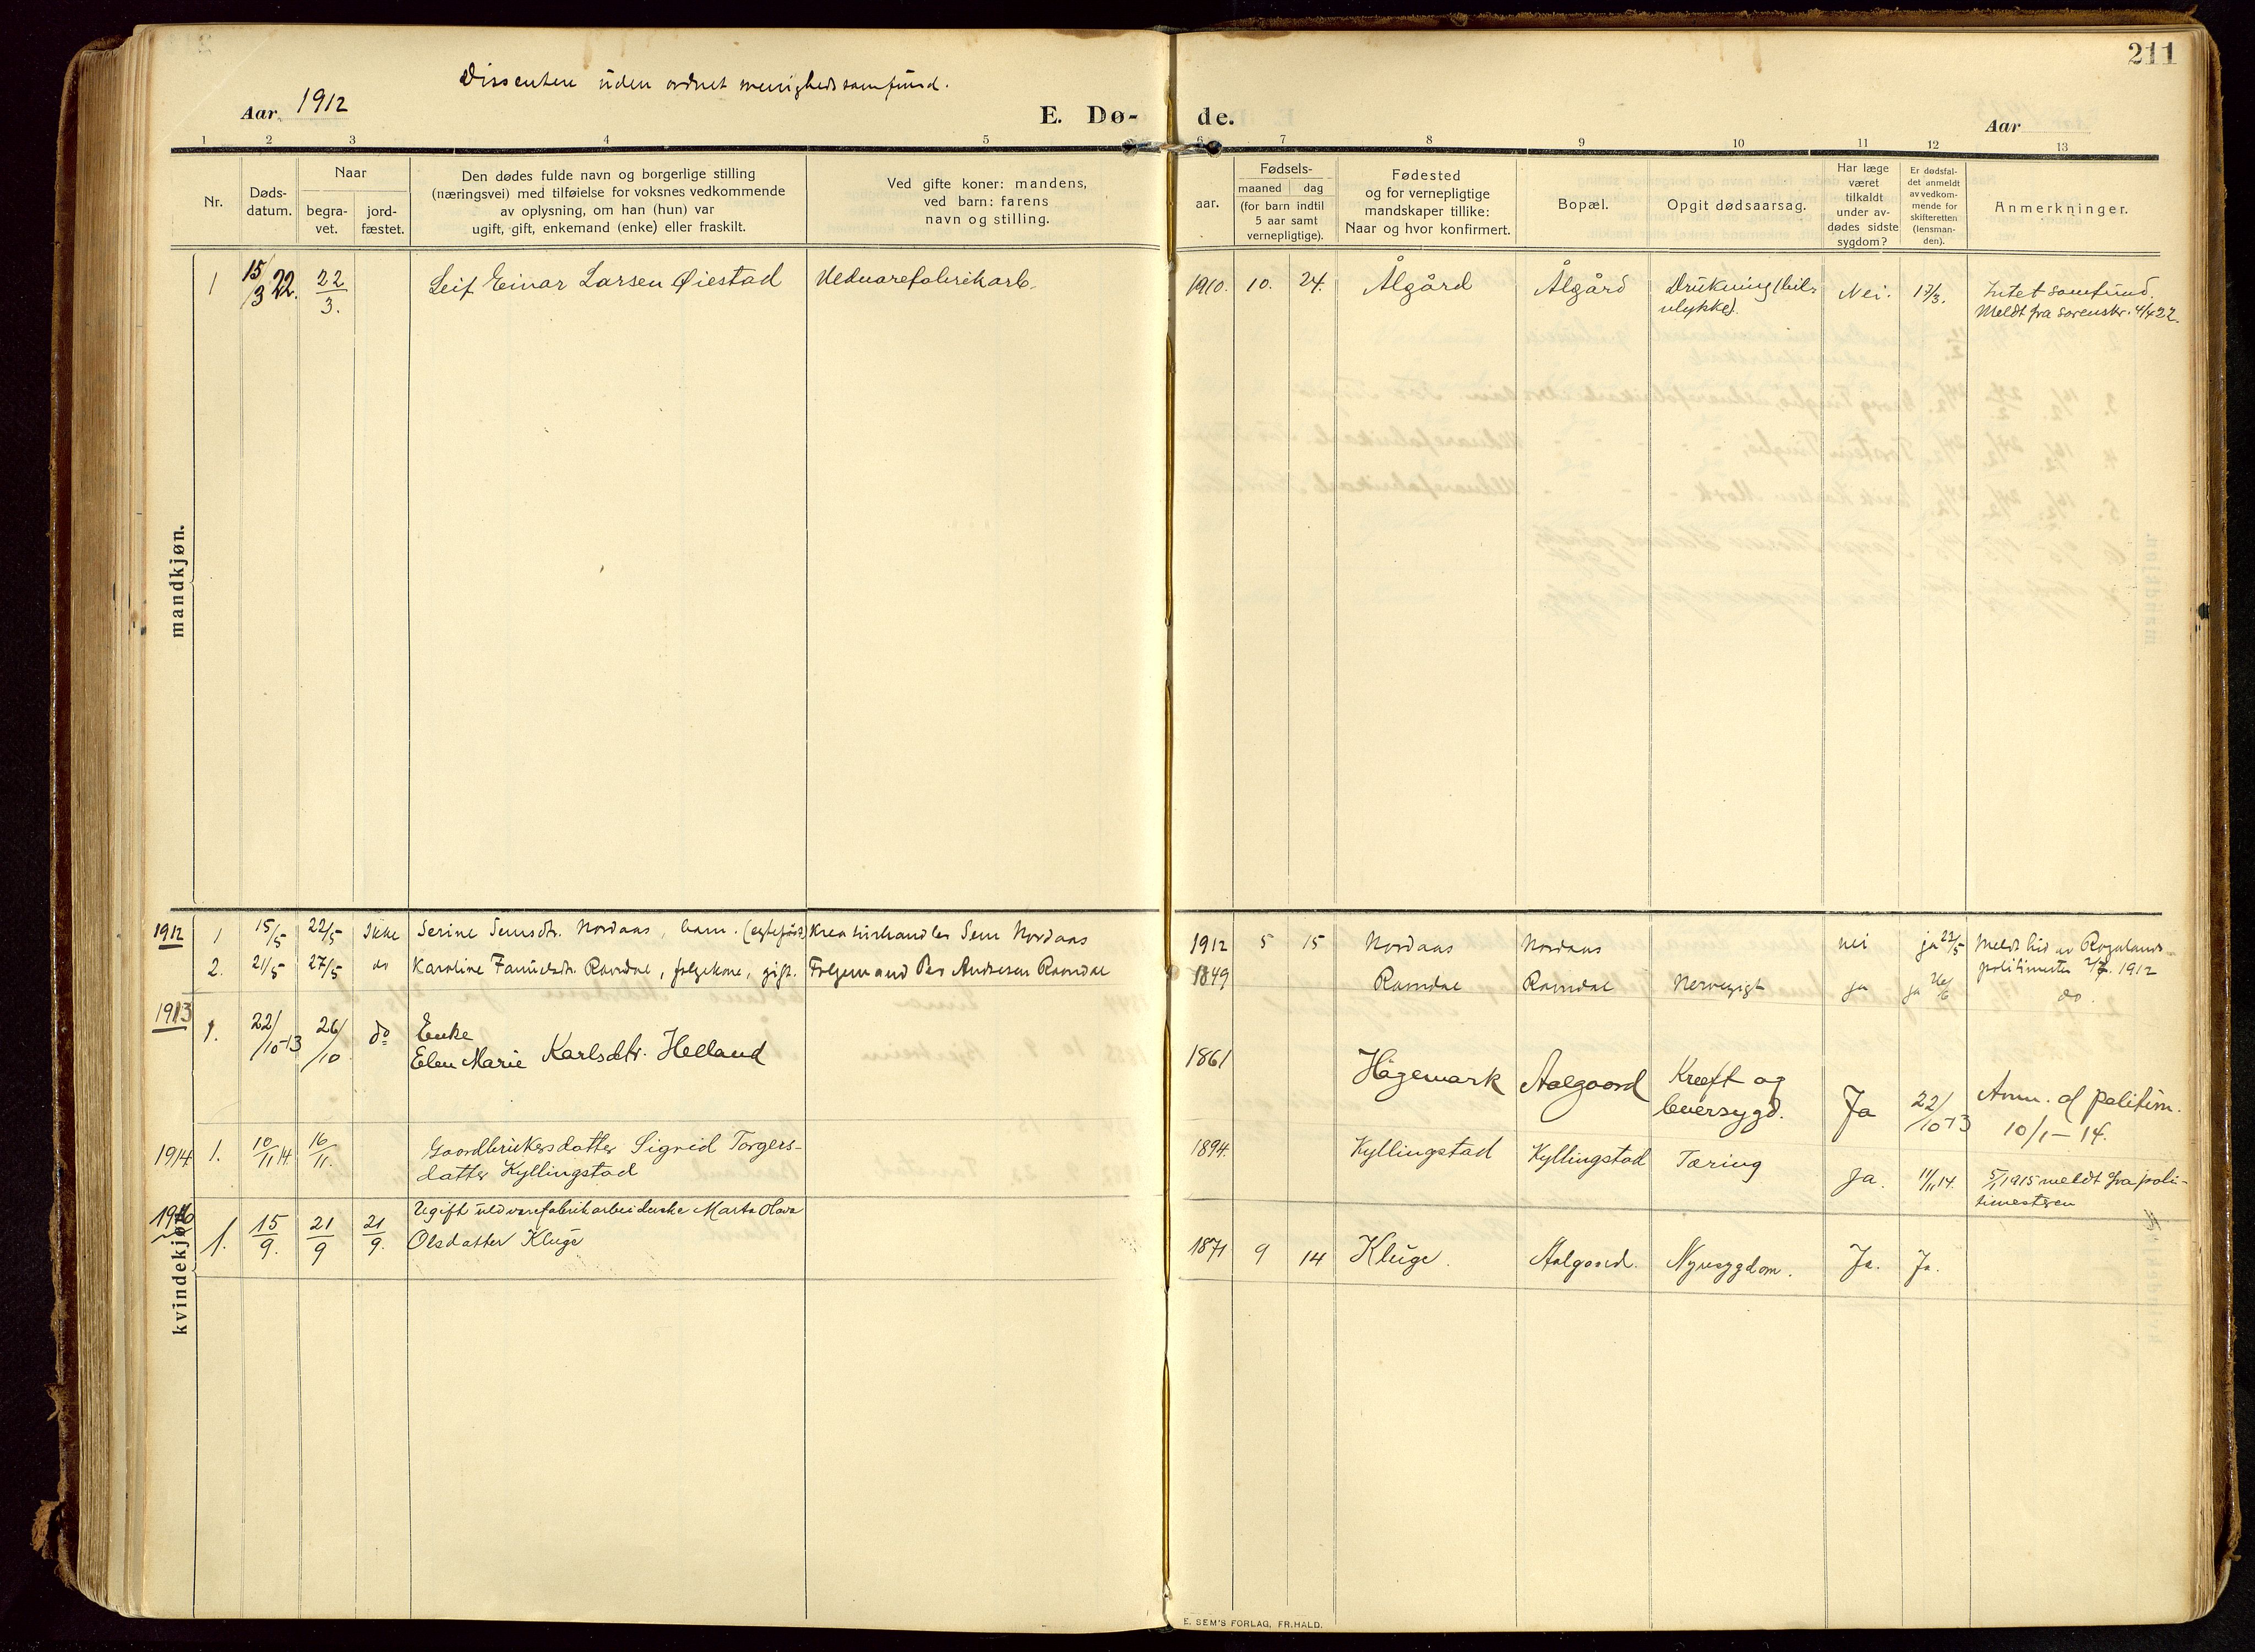 211
Dissentere uden ordnet menighedssamfund.
Aar 1912
E. Dø-
de.
Aar
1 2 3 4 5 6 7 8 9 10 11 12 13
Nr.
Døds-
datum.
Naar
begra-
vet.
jord-
fæstet.
Den dødes fulde navn og borgerlige stilling
(næringsvei) med tilføielse for voksnes vedkommende
av oplysning, om han (hun) var
ugift, gift, enkemand (enke) eller fraskilt.
Ved gifte koner: mandens,
ved barn: farens
navn og stilling.
Fødsels-
aar.
maaned dag
(for barn indtil
5 aar samt
vernepligtige).
Fødested
og for vernepligtige
mandskaper tillike:
Naar og hvor konfirmert.
Bopæl.
Opgit dødsaarsag.
Har læge
været
tilkaldt
under av-
dødes sidste
sygdom?
Er dødsfal-
det anmeldt
av vedkom-
mende for
skifteretten
(lensman-
den).
Anmerkninger.
mandkjøn.
1 15/3 22. 22/3. Leif Einar Larsen Øiestad Uldvarefabrikarb. 1910. 10. 24. Ålgård Ålgård Drukning (bil-
ulykke).
Nei. 17/3. Intet samfund.
Meldt fra sorenskr. 4/4 22.
kvindekjøn.
1912 1 15/5 22/5 Ikke Serine Semsdtr. Nordaas, barn. (egtefødt) Kreaturhandler Sem Nordaas 1912 5 15 Nordaas Nordaas nei ja 22/5 Meldt hid av Rogalands
politimester 2/7. 1912
2. 21/5 27/5 do Karoline Danielsdtr. Ramdal, folgekone, gift. Folgemand Per Andersen Ramdal 1849 Ramdal Ramdal Nervegigt ja ja 26/6 do.
1913 1. 22/10-13 26/10 do Enke
Elen Marie Karlsdtr. Helland 1861 Hagemark Aalgaard Kræft og
leversygd.
Ja 22/10-13 Anm. af politim.
10/1-14.
1914 1. 10/11 14 16/11. Gaardbrukersdatter Sigrid Torgers-
datter Kyllingstad 1894. Kyllingstad Kyllingstad Tæring Ja. 11/11 14. 5/1 1915 meldt fra poli-
timesteren
1916 1. 15/9. 21/9 21/9. Ugift uldvarefabrikarbeiderske Marta Olava
Olsdatter Kluge 1871 9 14 Kluge. Aalgaard. Nyresygdom. Ja. Ja.
E. SEM'S FORLAG, FR.HALD.